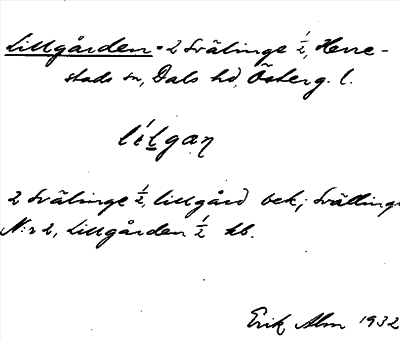 Lillgården = 2 Svälinge ½, Herre-
stads sn, Dals hd, Österg. l.
lílgan
2 Svälinge ½, lillgård bek; Svällinge
N:r 2, Lillgården ½ kb.
Erik Alm 1932